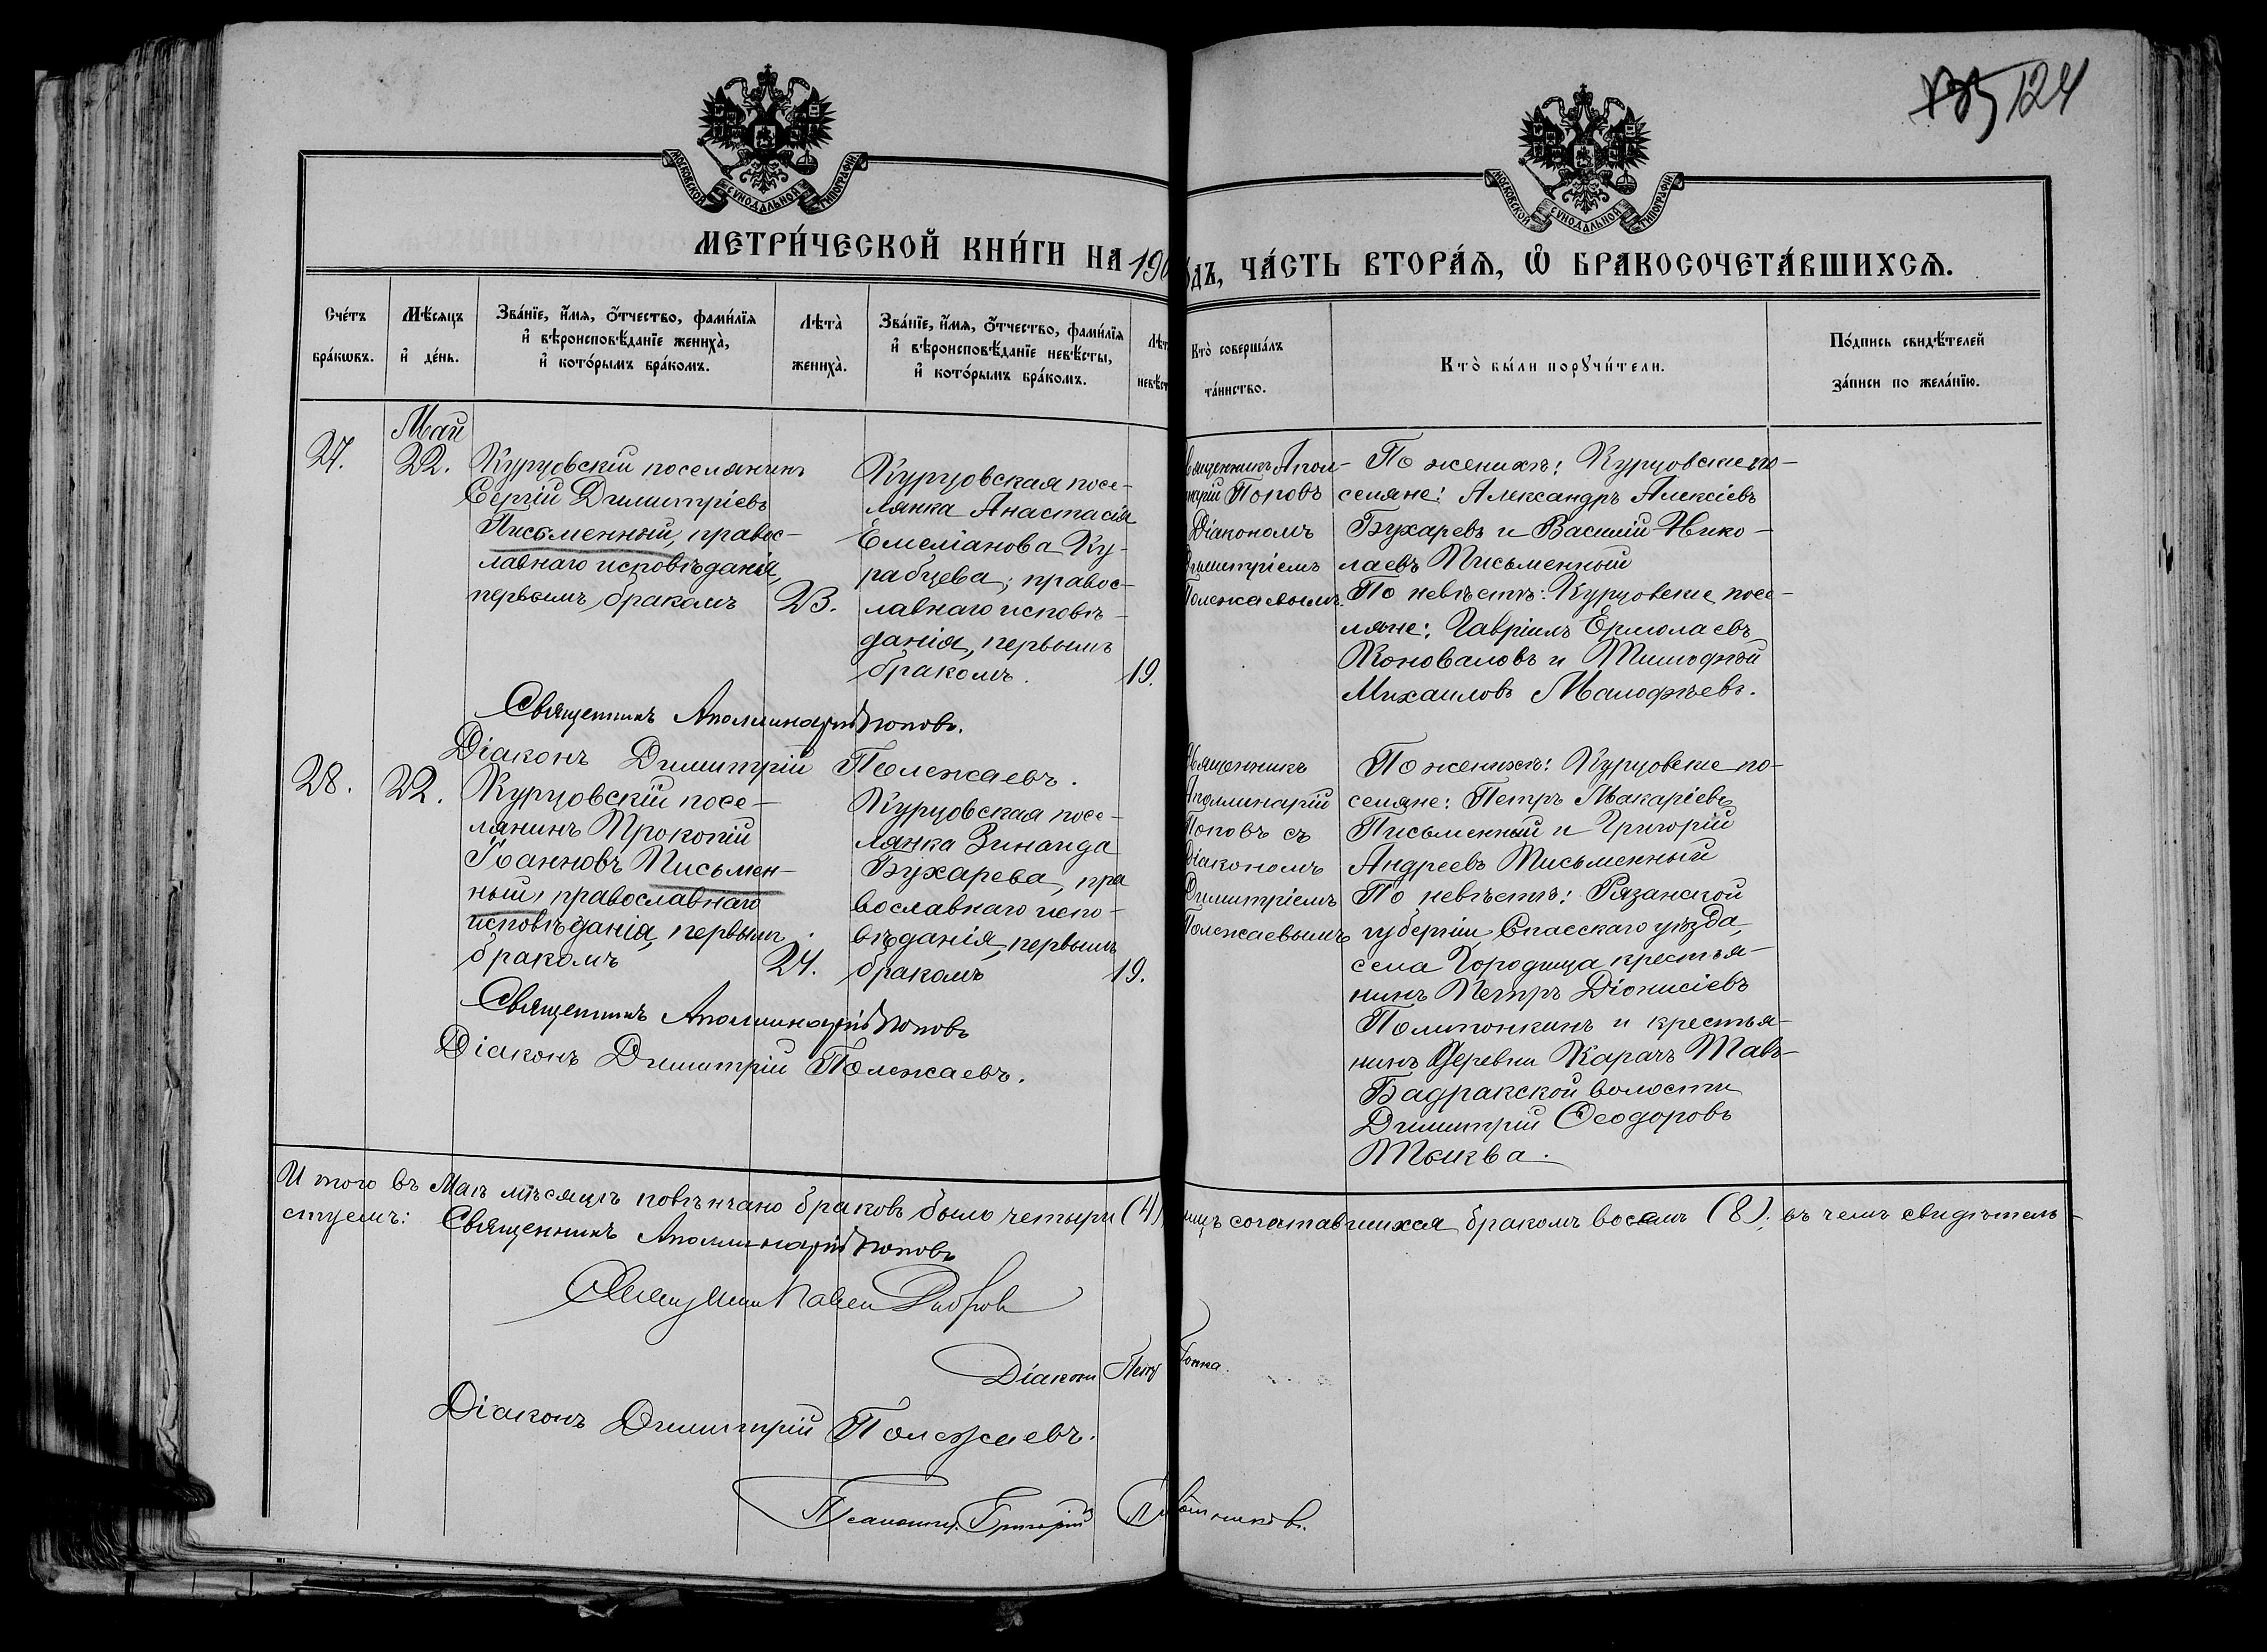 135 124
МОСКОВСКОЙ СѴНОДАЛЬНОЙ ТИПОГРАФІИ
МОСКОВСКОЙ СѴНОДАЛЬНОЙ ТИПОГРАФІИ
МЕТРИ́ЧЕСКОЙ КНИ́ГИ НА 190
ДЪ, ЧА́СТЬ ВТОРА́Я, Ѡ҆ БРАКОСОЧЕТА́ВШИХСЯ.
Сче́тъ
бра́ковъ.
Мѣ́сяцъ
и҆ де́нь.
Зва́нїе, и҆́мя, ѻ҆́тчество, фами́лїя
и҆ вѣроисповѣ́данїе женихà,
и҆ кото́рымъ бра́комъ.
Лѣ́та
женихà.
Зва́нїе, и҆́мя, ѻ҆́тчество, фами́лїя
и҆ вѣроисповѣ́данїе невѣ́сты,
и҆ кото́рымъ бра́комъ.
Лѣт
невѣст
Кто̀ соверша́лъ
та́инство.
Кто̀ бы́ли порꙋчи́тели.
По́дпись свидѣ́телей
за́писи по жела́нїю.
27.
Май
22.
Курцовскій поселянинъ
Сергій Димитріевъ
Письменный, правос-
лавнаго исповѣданія,
первымъ бракомъ
23.
Курцовская посе-
лянка Анастасія
Емеліанова Ку-
рабцева, правос-
лавнаго исповѣ-
данія, первымъ
бракомъ.
19.
вященникъ Апол-
нарій Поповъ
Діакономъ
Димитріемъ
Полежаевымъ.
По женихѣ: Курцовскіе по-
селяне: Александръ Алексіевъ
Бухаревъ и Василій Нико-
лаевъ Письменный
По невѣстѣ: Курцовскіе посе-
ляне: Гавріилъ Ермолаевъ
Коноваловъ и Тимофей
Михаиловъ Малофѣевъ.
Священникъ Аполлинарій Поповъ.
Діаконъ Димитрій Полежаевъ.
28.
22.
Курцовскій посе-
лянинъ Прокопій
Іоанновъ Письмен-
ный, православнаго
исповѣданія, первымъ
бракомъ
24.
Курцовская посе-
лянка Зинаида
Бухарева, пра
вославнаго испо-
вѣданія, первымъ
бракомъ
19.
вященникъ
Аполлинарій
Поповъ съ
Діакономъ
Димитріемъ
Полежаевымъ
По женихѣ: Курцовскіе по-
селяне: Петръ Макаріевъ
Письменный и Григорій
Андреевъ Письменный
По невѣстѣ: Рязанской
губерніи, Спасскаго уѣзда,
села Городища крестья-
нинъ Петръ Діонисіевъ
и крестья-
нинъ деревни Карачъ Тавъ-
Бадракской волости
Димитрій Ѳеодоровъ
Священникъ Аполлинарій Поповъ
Діаконъ Димитрій Полежаевъ.
И того въ Маѣ мѣсяцѣ повѣнчано браковъ было четыри (4), лицъ сочетавшихся бракомъ восемь (8); въ чемъ свидѣтель-
ствуемъ: Священникъ Аполлинарій Поповъ
Павел
Діаконъ Петр
Діаконъ Димитрій Полежаевъ.
Григорій